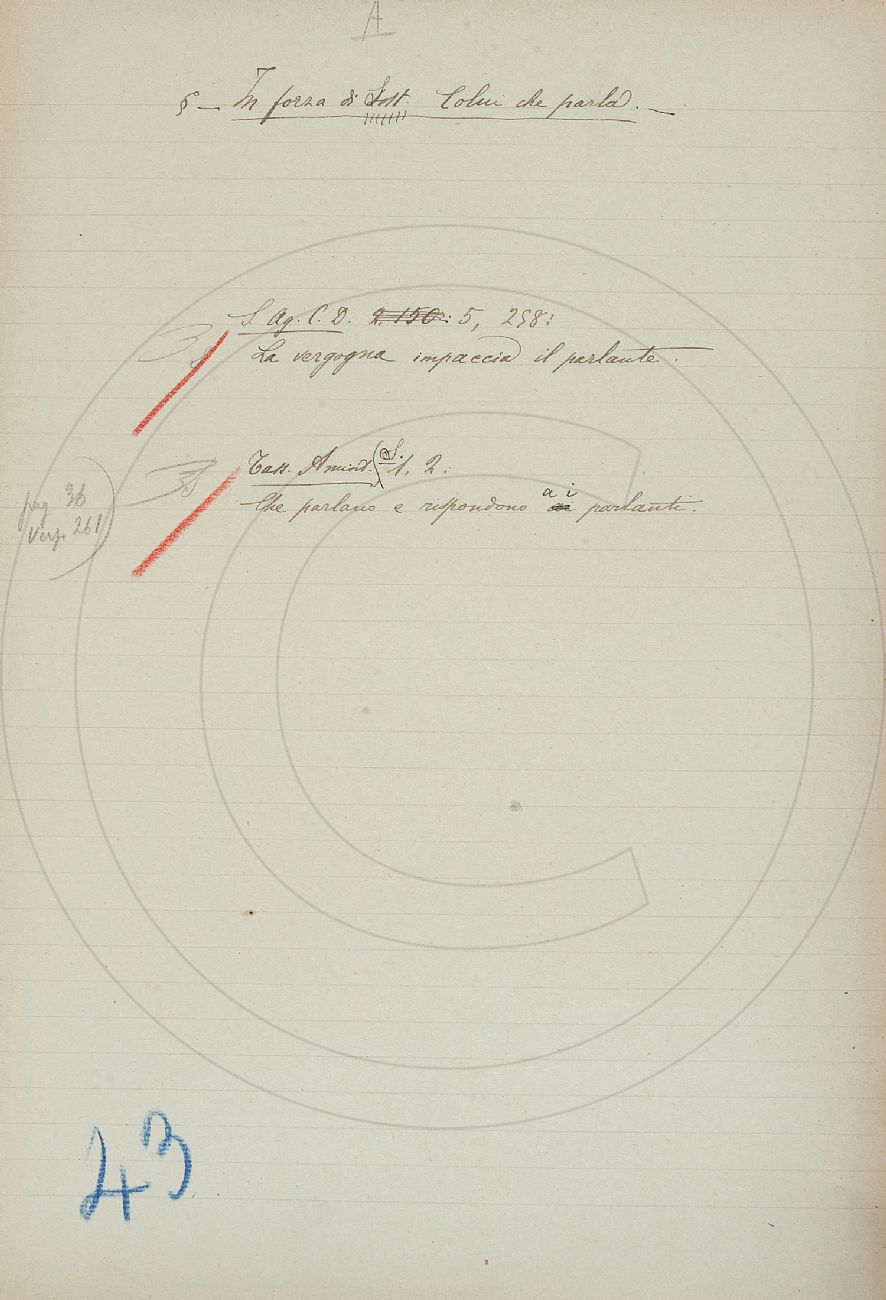 A
§ — In forza di Sost. Colui che parla. —
S. Ag. C. D. 2. 150: 5, 258:
La vergogna impaccia il parlante.
Tass. Amint. S. 1. 2:
pag. 36
Vers. 261
Che parlano e rispondono ai parlanti.
43